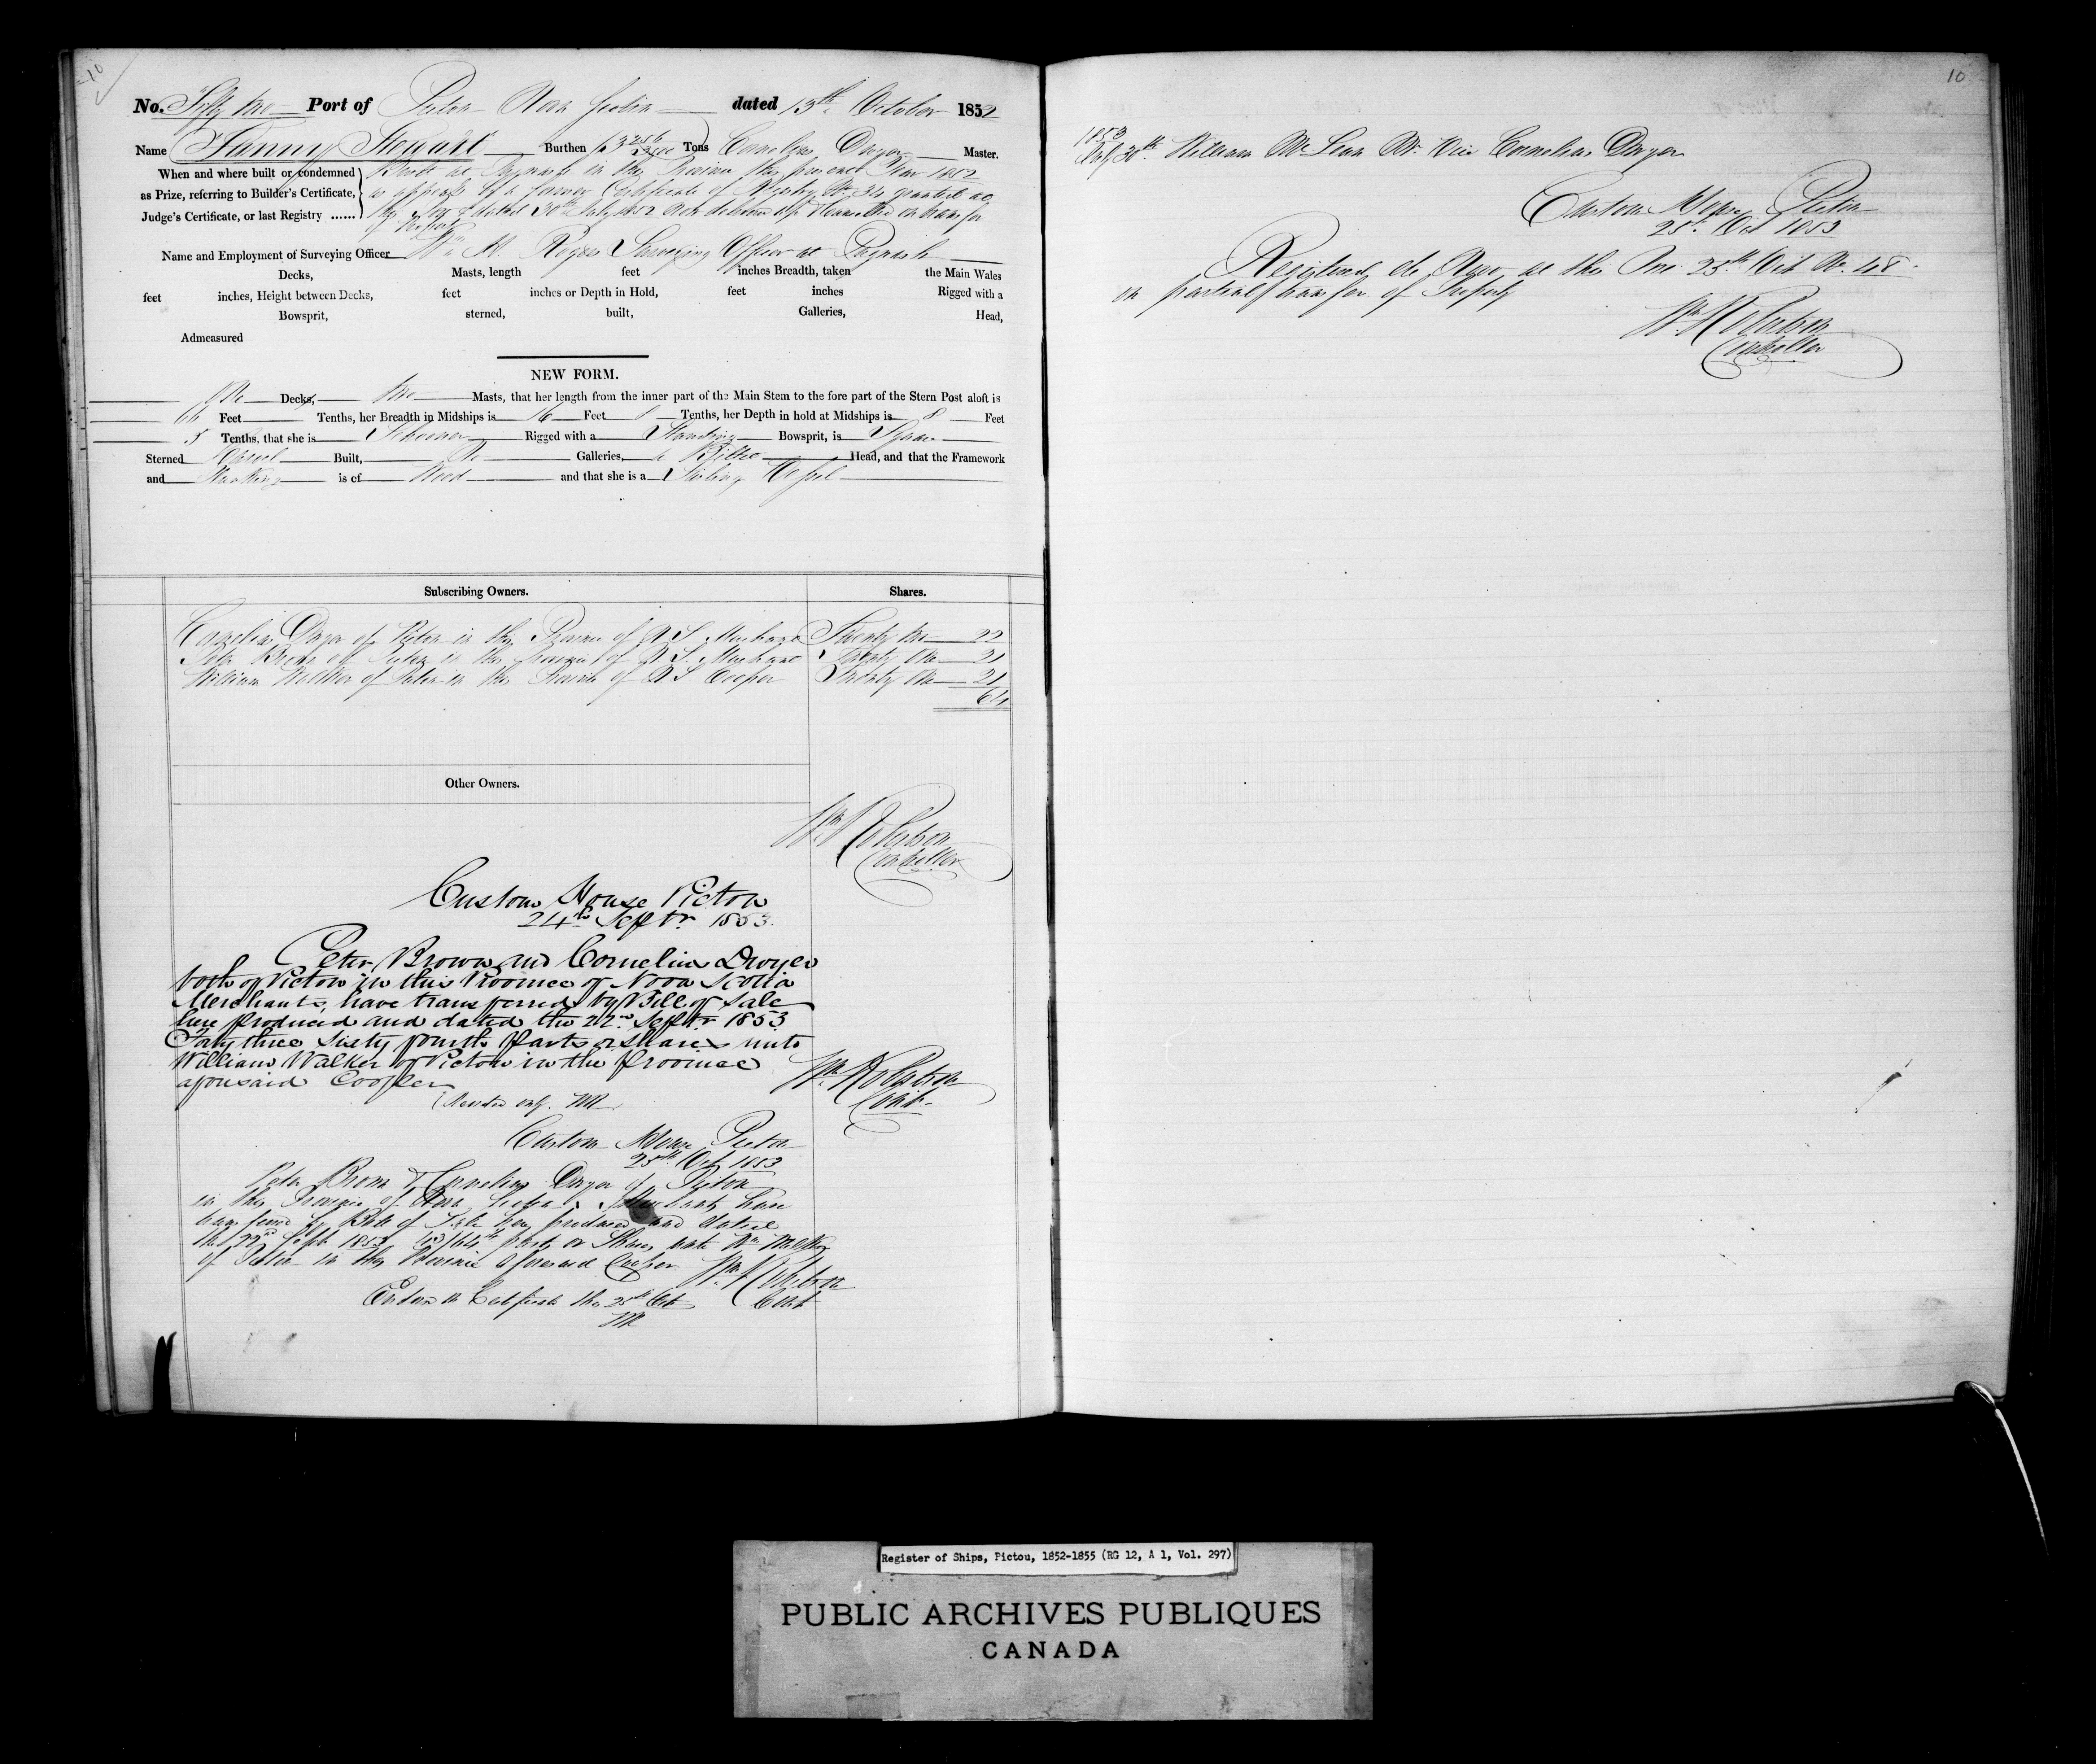 10
No. Fifty two Port of Pictou Nova Scotia dated 13th October 1852
Name Fanny Stewart Burthen Tons Cornelius Dwyer Master.
When and where built or condemned
as Prize, referring to Builder's Certificate,
Judge's Certificate, or last Registry ......
Built at Pugwash in this Province this present Year 1852
as appears by a former Certificate of Registry No. 34 granted at
this Port dated 30th July 1852 now delivered up & cancelled on transfer
of Property
Name and Employment of Surveying Officer Wm H. Surveying Officer at Pugwash
Decks, Masts, length feet inches Breadth, taken the Main Wales
feet inches, Height between Decks, feet inches or Depth in Hold, feet inches Rigged with a
Bowsprit, sterned, built, Galleries, Head,
Admeasured
NEW FORM.
One Decks, two Masts, that her length from the inner part of the Main Stem to the fore part of the Stern Post aloft is
66 Feet Tenths, her Breadth in Midships is 16 Feet 8 Tenths, her Depth in hold at Midships is 8 Feet
5 Tenths, that she is Schooner Rigged with a Standing Bowsprit, is Square
Sterned Carvel Built, No Galleries, a Billet Head, and that the Framework
and Planking is of Wood and that she is a Sailing Vessel
Subscribing Owners. Shares.
Cornelius Dwyer of Pictou in the Province of N S Merchant Twenty two 22
Peter Brown of Pictou in the Province of N S. Merchant Twenty One 21
William Walker of Pictou in the Province of N S Cooper Twenty One 21
64
Other Owners.
Wm Robertson
Controller
Custom House Pictou
24th Septr. 1853.
Peter Brown and Cornelius Dwyer
both of Pictou in this Province of Nova Scotia
Merchants, have transferred by Bill of Sale
here produced and dated the 22nd Septr 1853
Forty three sixty fourth parts or shares unto
William Walker of Pictou in the Province
aforesaid Cooper
Wm. Robertson
Cont.
Custom House Pictou
25th Oct 1853
Peter Brown & Cornelius Dwyer of Pictou
in the Province of Nova Scotia Merchants have
transferred by Bill of Sale here produced and dated
the 22nd Sept. 1853 43/64th parts or Shares unto Wm Walker
of Pictou in the Province aforesaid Cooper Wm Robertson
Endorsed on Certificate the 25th Oct Cont
WR
10
1853
July 30th. William McLean Mr. Vice Cornelius Dwyer
Custom House Pictou
25th Oct 1853
Registered de Novo at this Port 25th Oct No. 48
on partial transfer of Property
Wm Robertson
Controller
Register of Ships, Pictou, 1852-1855 (RG 12, A 1, Vol. 297)
PUBLIC ARCHIVES PUBLIQUES
CANADA